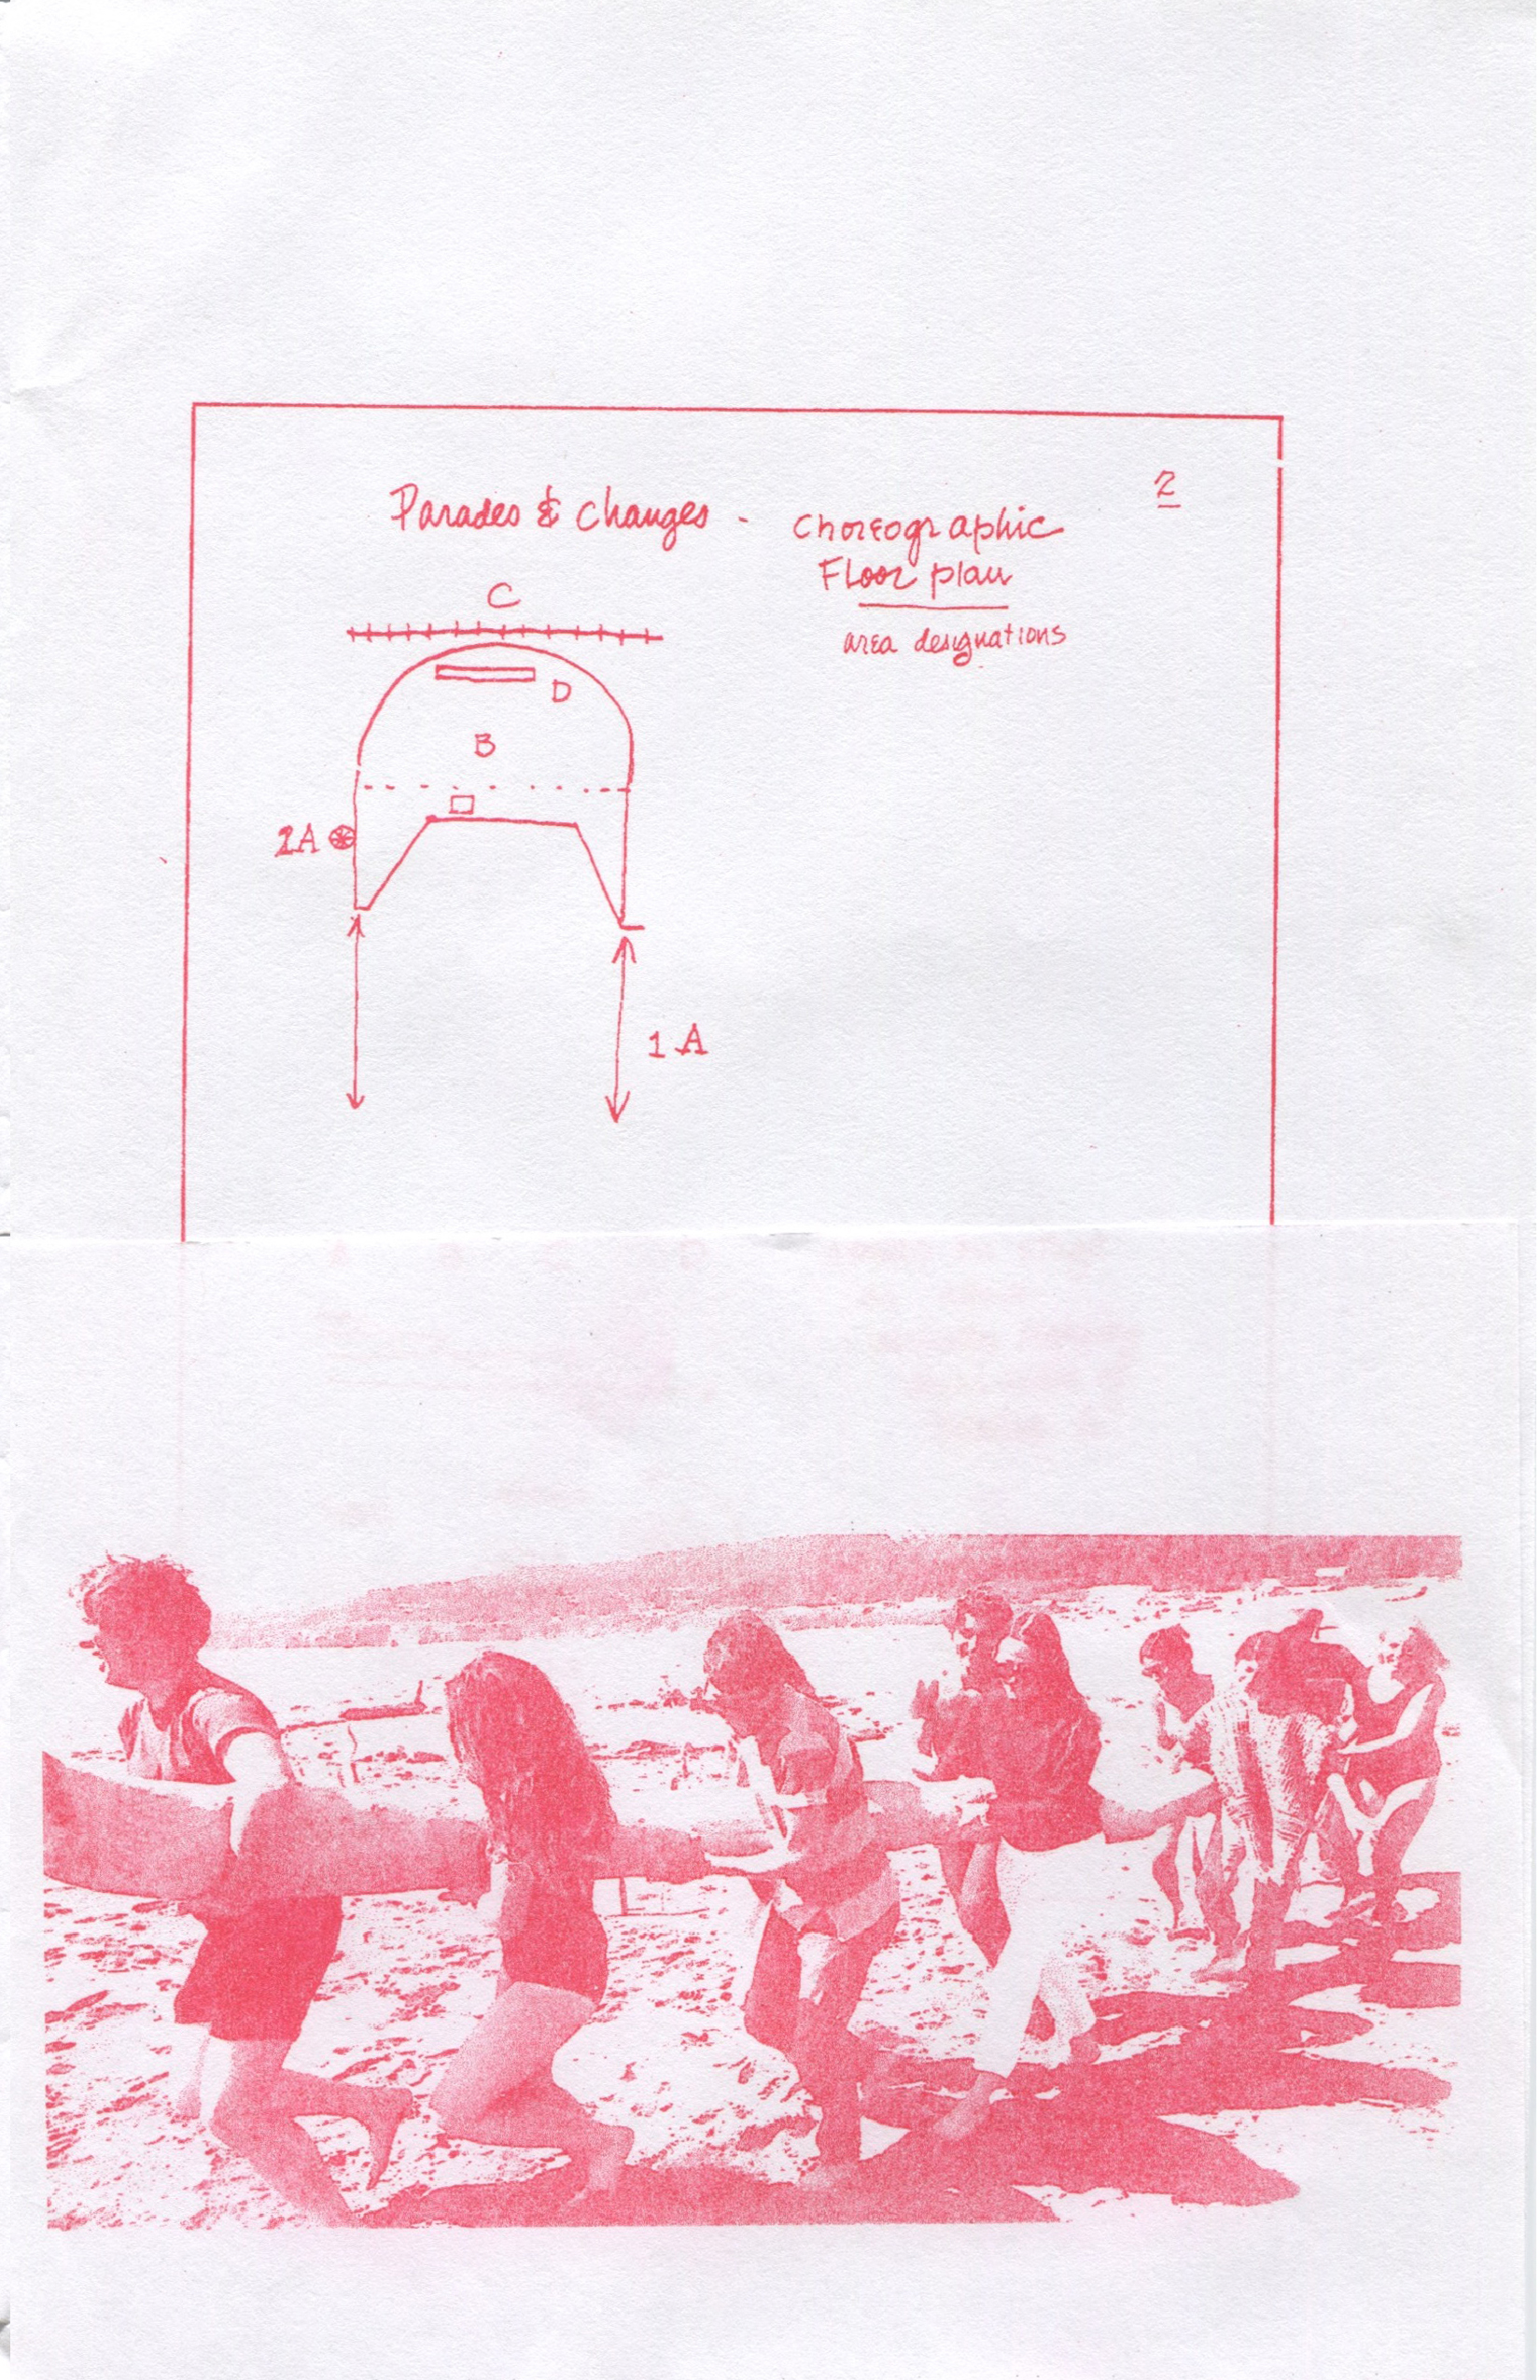 2
Parades & Changes - Choreographic
Floor plan
area designations
C
D
B
2A
1A